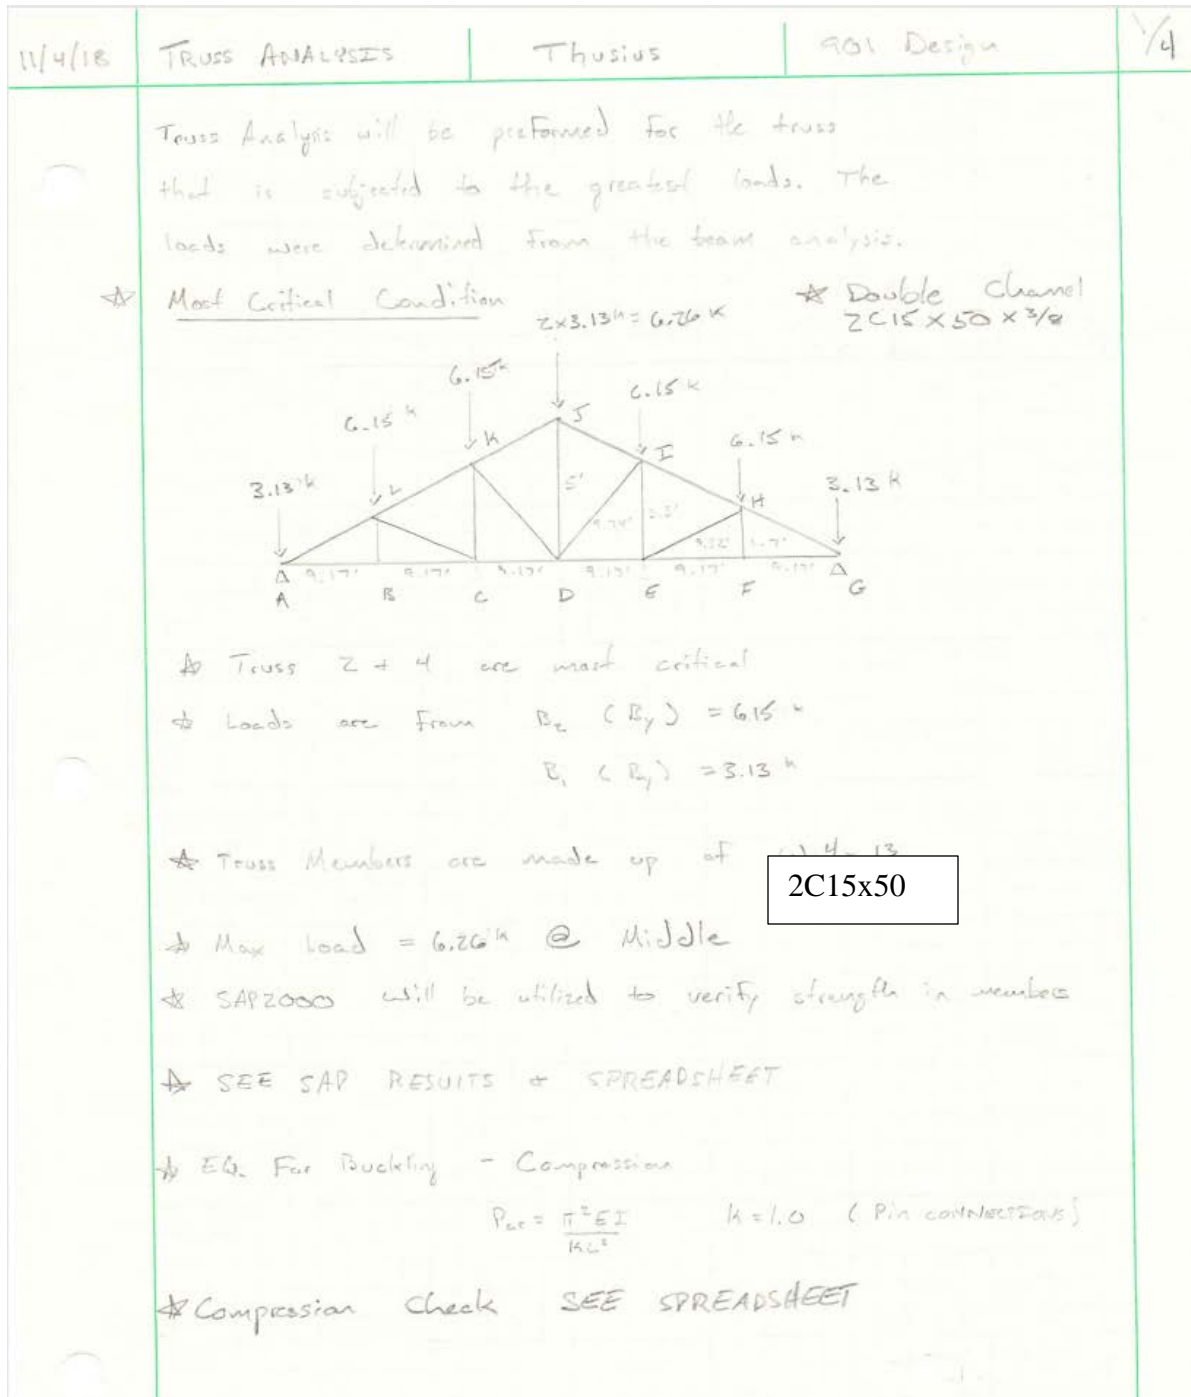 11/4/18 TRUSS ANALYSIS Thusius 901 Design 1/4
Truss Analysis will be preformed for the truss
that is subjected to the greatest loads. The
loads were determined from the beam analysis.
Most Critical Condition
Double Channel
2C15 x 50 x 3/8
2x3.13k = 6.26 k
6.15k
6.15 k
6.15 k
6.15 k
3.13 k
3.13 k
L K J I H
5'
9.74' 3.3'
9.32' 1.7'
9.17' 9.17' 9.17' 9.17' 9.17' 9.17'
A B C D E F G
Truss 2 + 4 are most critical
Loads are from B2 (By) = 6.15 k
B1 (By) = 3.13 k
Truss Members are made up of
2C15x50
Max Load = 6.26 k @ Middle
SAP2000 will be utilized to verify strength in members
SEE SAP RESULTS + SPREADSHEET
EQ. For Buckling - Compression
Pcr = π²EI / KL² K = 1.0 (Pin CONNECTIONS)
Compression Check SEE SPREADSHEET